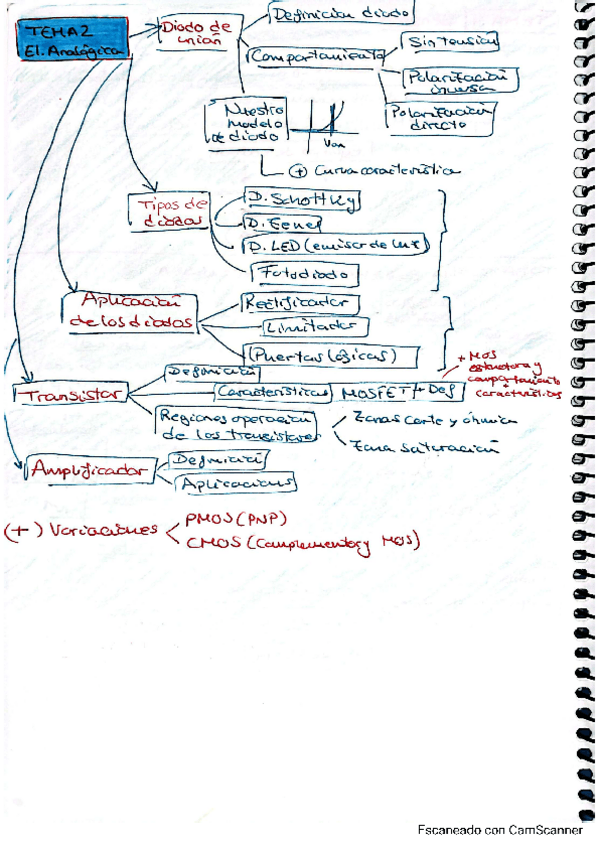 TEMA 2
El. Analógica
Diodo de
unión
Definición diodo
Comportamiento
Sin tensión
Polarización
inversa
Polarización
directo
Nuestro
modelo
de diodo
Von
(+) Curva característica
Tipos de
diodos
D. Schottky
D. Zener
D. LED (emisor de luz)
Fotodiodo
Aplicación
de los diodos
Rectificador
Limitador
(Puertas lógicas)
Transistor
Definición
Características
MOSFET + Def
+ MOS
estructura y
comportamiento
+
características
Regiones operación
de los transistores
Zonas corte y óhmica
Zona saturación
Amplificador
Definición
Aplicaciones
(+) Variaciones
PMOS (PNP)
CMOS (Complementary MOS)
Escaneado con CamScanner